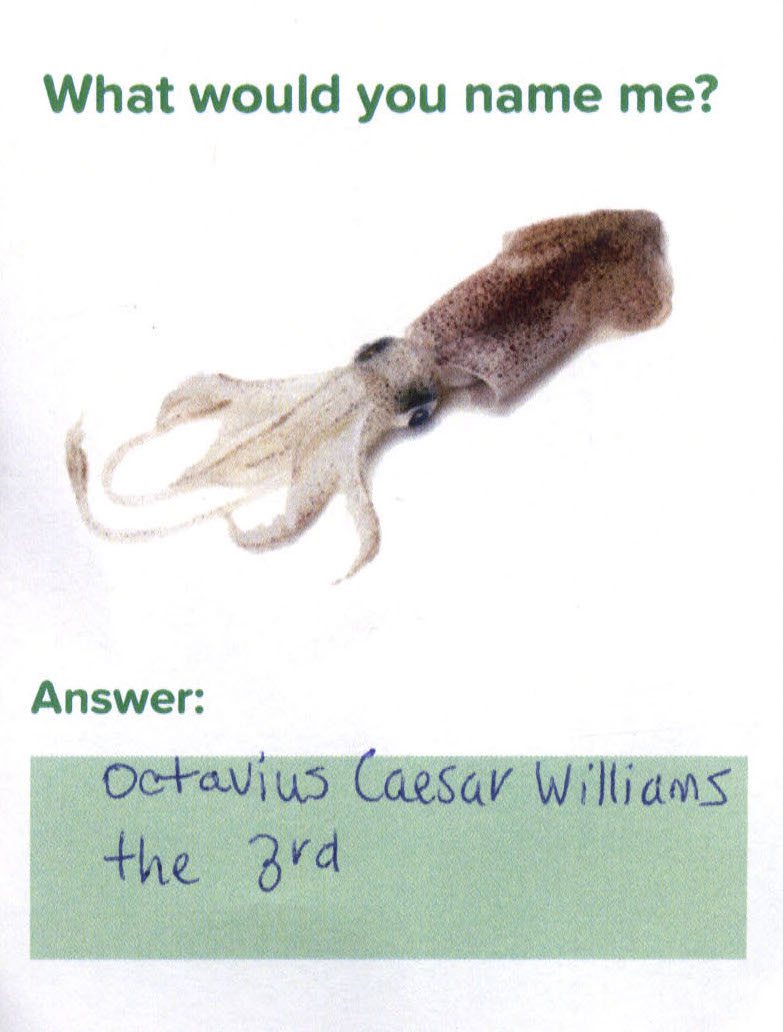 What would you name me?
Answer:
Octavius Caesar Williams
the 3rd